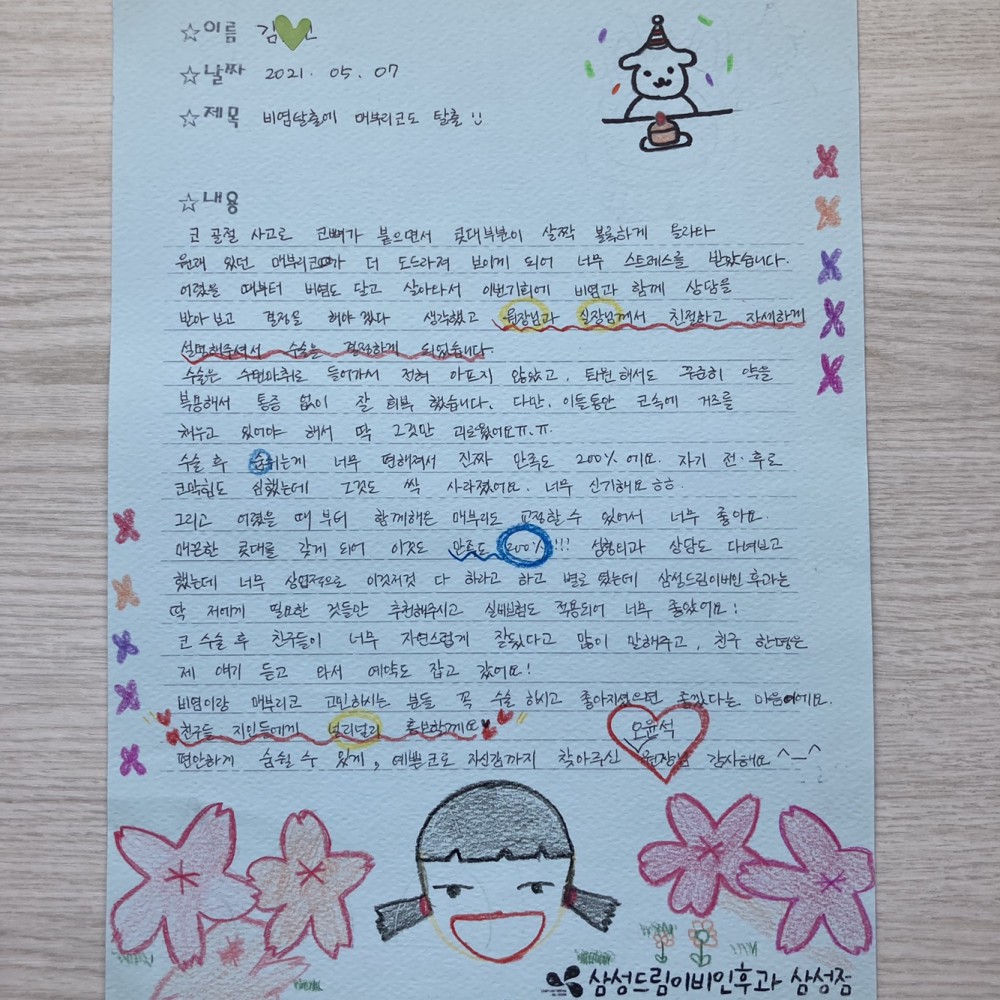 ☆이름 김
☆날짜 2021. 05. 07
☆제목 비염탈출에 매부리코도 탈출
☆내용
코 골절 사고로 코뼈가 붙으면서 콧대부분이 살짝 볼록하게 올라타
원래 있던 매부리코가 더 도드라져 보이게 되어 너무 스트레스를 받았습니다.
어렸을 때부터 비염도 달고 살아와서 이번기회에 비염과 함께 상담을
받아보고 결정을 해야겠다 생각했고 원장님과 실장님께서 친절하고 자세하게
설명해주셔서 수술을 결정하게 되었습니다.
수술은 수면마취로 들어가서 전혀 아프지 않았고, 퇴원해서도 꾸준히 약을
복용해서 통증 없이 잘 회복 했습니다. 다만, 이틀동안 코속에 거즈를
채우고 있어야 해서 딱 그것만 괴로웠어요ㅠ.ㅠ.
수술 후 숨쉬는게 너무 편해져서 진짜 만족도 200% 에요. 자기 전·후로
코막힘도 심했는데 그것도 싹 사라졌어요. 너무 신기해요 ㅎㅎ.
그리고 어렸을 때 부터 함께해온 매부리도 교정할 수 있어서 너무 좋아요.
매끈한 콧대를 갖게 되어 이것도 만족도 200% !!! 성형외과 상담도 다녀보고
했는데 너무 상업적으로 이것저것 다 하라고 하고 별로 였는데 삼성드림이비인후과는
딱 저에게 필요한 것들만 추천해주시고 실비보험도 적용되어 너무 좋았어요!
코 수술 후 친구들이 너무 자연스럽게 잘됐다고 많이 말해주고, 친구 한명은
제 얘기 듣고 와서 예약도 잡고 갔어요!
비염이랑 매부리코 고민하시는 분들 꼭 수술 하시고 좋아지셨으면 좋겠다는 마음이에요.
친구들 지인들에게 널리널리 홍보할게요
편안하게 숨쉴 수 있게, 예쁜코로 자신감까지 찾아주신 오윤석 원장님 감사해요 ^ㅡ^
삼성드림이비인후과 삼성점